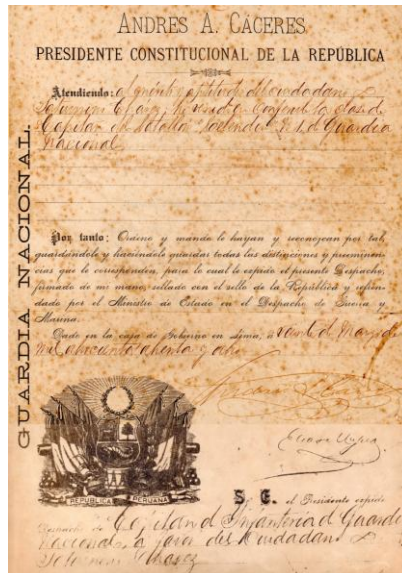 ANDRES A. CÁCERES
PRESIDENTE CONSTITUCIONAL DE LA REPÚBLICA
GUARDIA NACIONAL.
Atendiendo: al mérito y aptitudes del ciudadano
conferirle la clase de
Capitan del Batallon de Guardia
Nacional
Por tanto: Ordeno y mando le hayan y reconozcan por tal,
guardándole y haciéndole guardar todas las distinciones y preeminen-
cias que le corresponden, para lo cual le expido el presente Despacho,
firmado de mi mano, sellado con el sello de la República y refren-
dado por el Ministro de Estado en el Despacho de Guerra y
Marina.
Dado en la casa de Gobierno en Lima, á veinte de Marzo de
mil ochocientos ochenta y ocho
REPUBLICA PERUANA
S. E. el Presidente expide
Despacho de Capitan de Infanteria de Guardia
Nacional, a favor del Ciudadano
Chavez